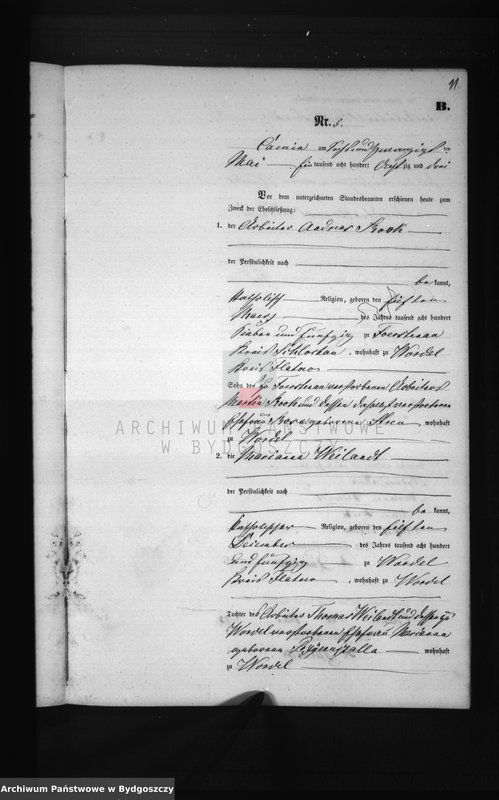 11.
B.
Nr. 5.
Camin am sechs und zwanzigsten
Mai tausend acht hundert achtzig und drei
Vor dem unterzeichneten Standesbeamten erschienen heute zum
Zweck der Eheschließung:
1. der Arbeiter Andreas Kook
der Persönlichkeit nach
be kannt,
katholischer Religion, geboren den fünften
Maerz des Jahres tausend acht hundert
sieben und fünfzig zu
Kreis Schlochau, wohnhaft zu Wordel
Kreis Flatow
Sohn des zu verstorbenen Arbeiters
Martin Kook und dessen daselbst verstorbenen
Ehefrau geborene wohnhaft
zu Wordel
2. die Marianna Weilandt
der Persönlichkeit nach
be kannt,
katholischer Religion, geboren den elften
Dezember des Jahres tausend acht hundert
und fünfzig zu Wordel
Kreis Flatow, wohnhaft zu Wordel
Tochter des Arbeiter Thomas Weilandt und dessen zu
Wordel verstorbenen Ehefrau Marianna
geborenen wohnhaft
zu Wordel
ARCHIWUM PAŃSTWOWE
W BYDGOSZCZY
Archiwum Państwowe w Bydgoszczy